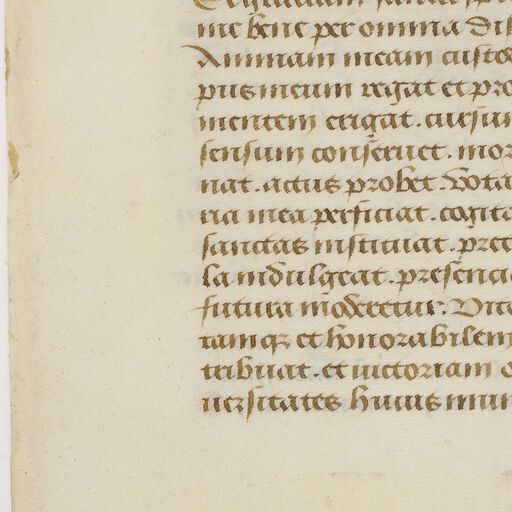 me bene per omnia dis
Animam meam custod
pus meum regat et pro
mentem erigat. cursum
sensum conseruet. mor
nat. actus probet. Vota
ria mea perficiat. cogita
sanctas instituat. prete
la indulgeat. presencia
futura moderetur. Vita
tamq; et honorabilem
tribuat. et uictoriam
uersitates huius mun